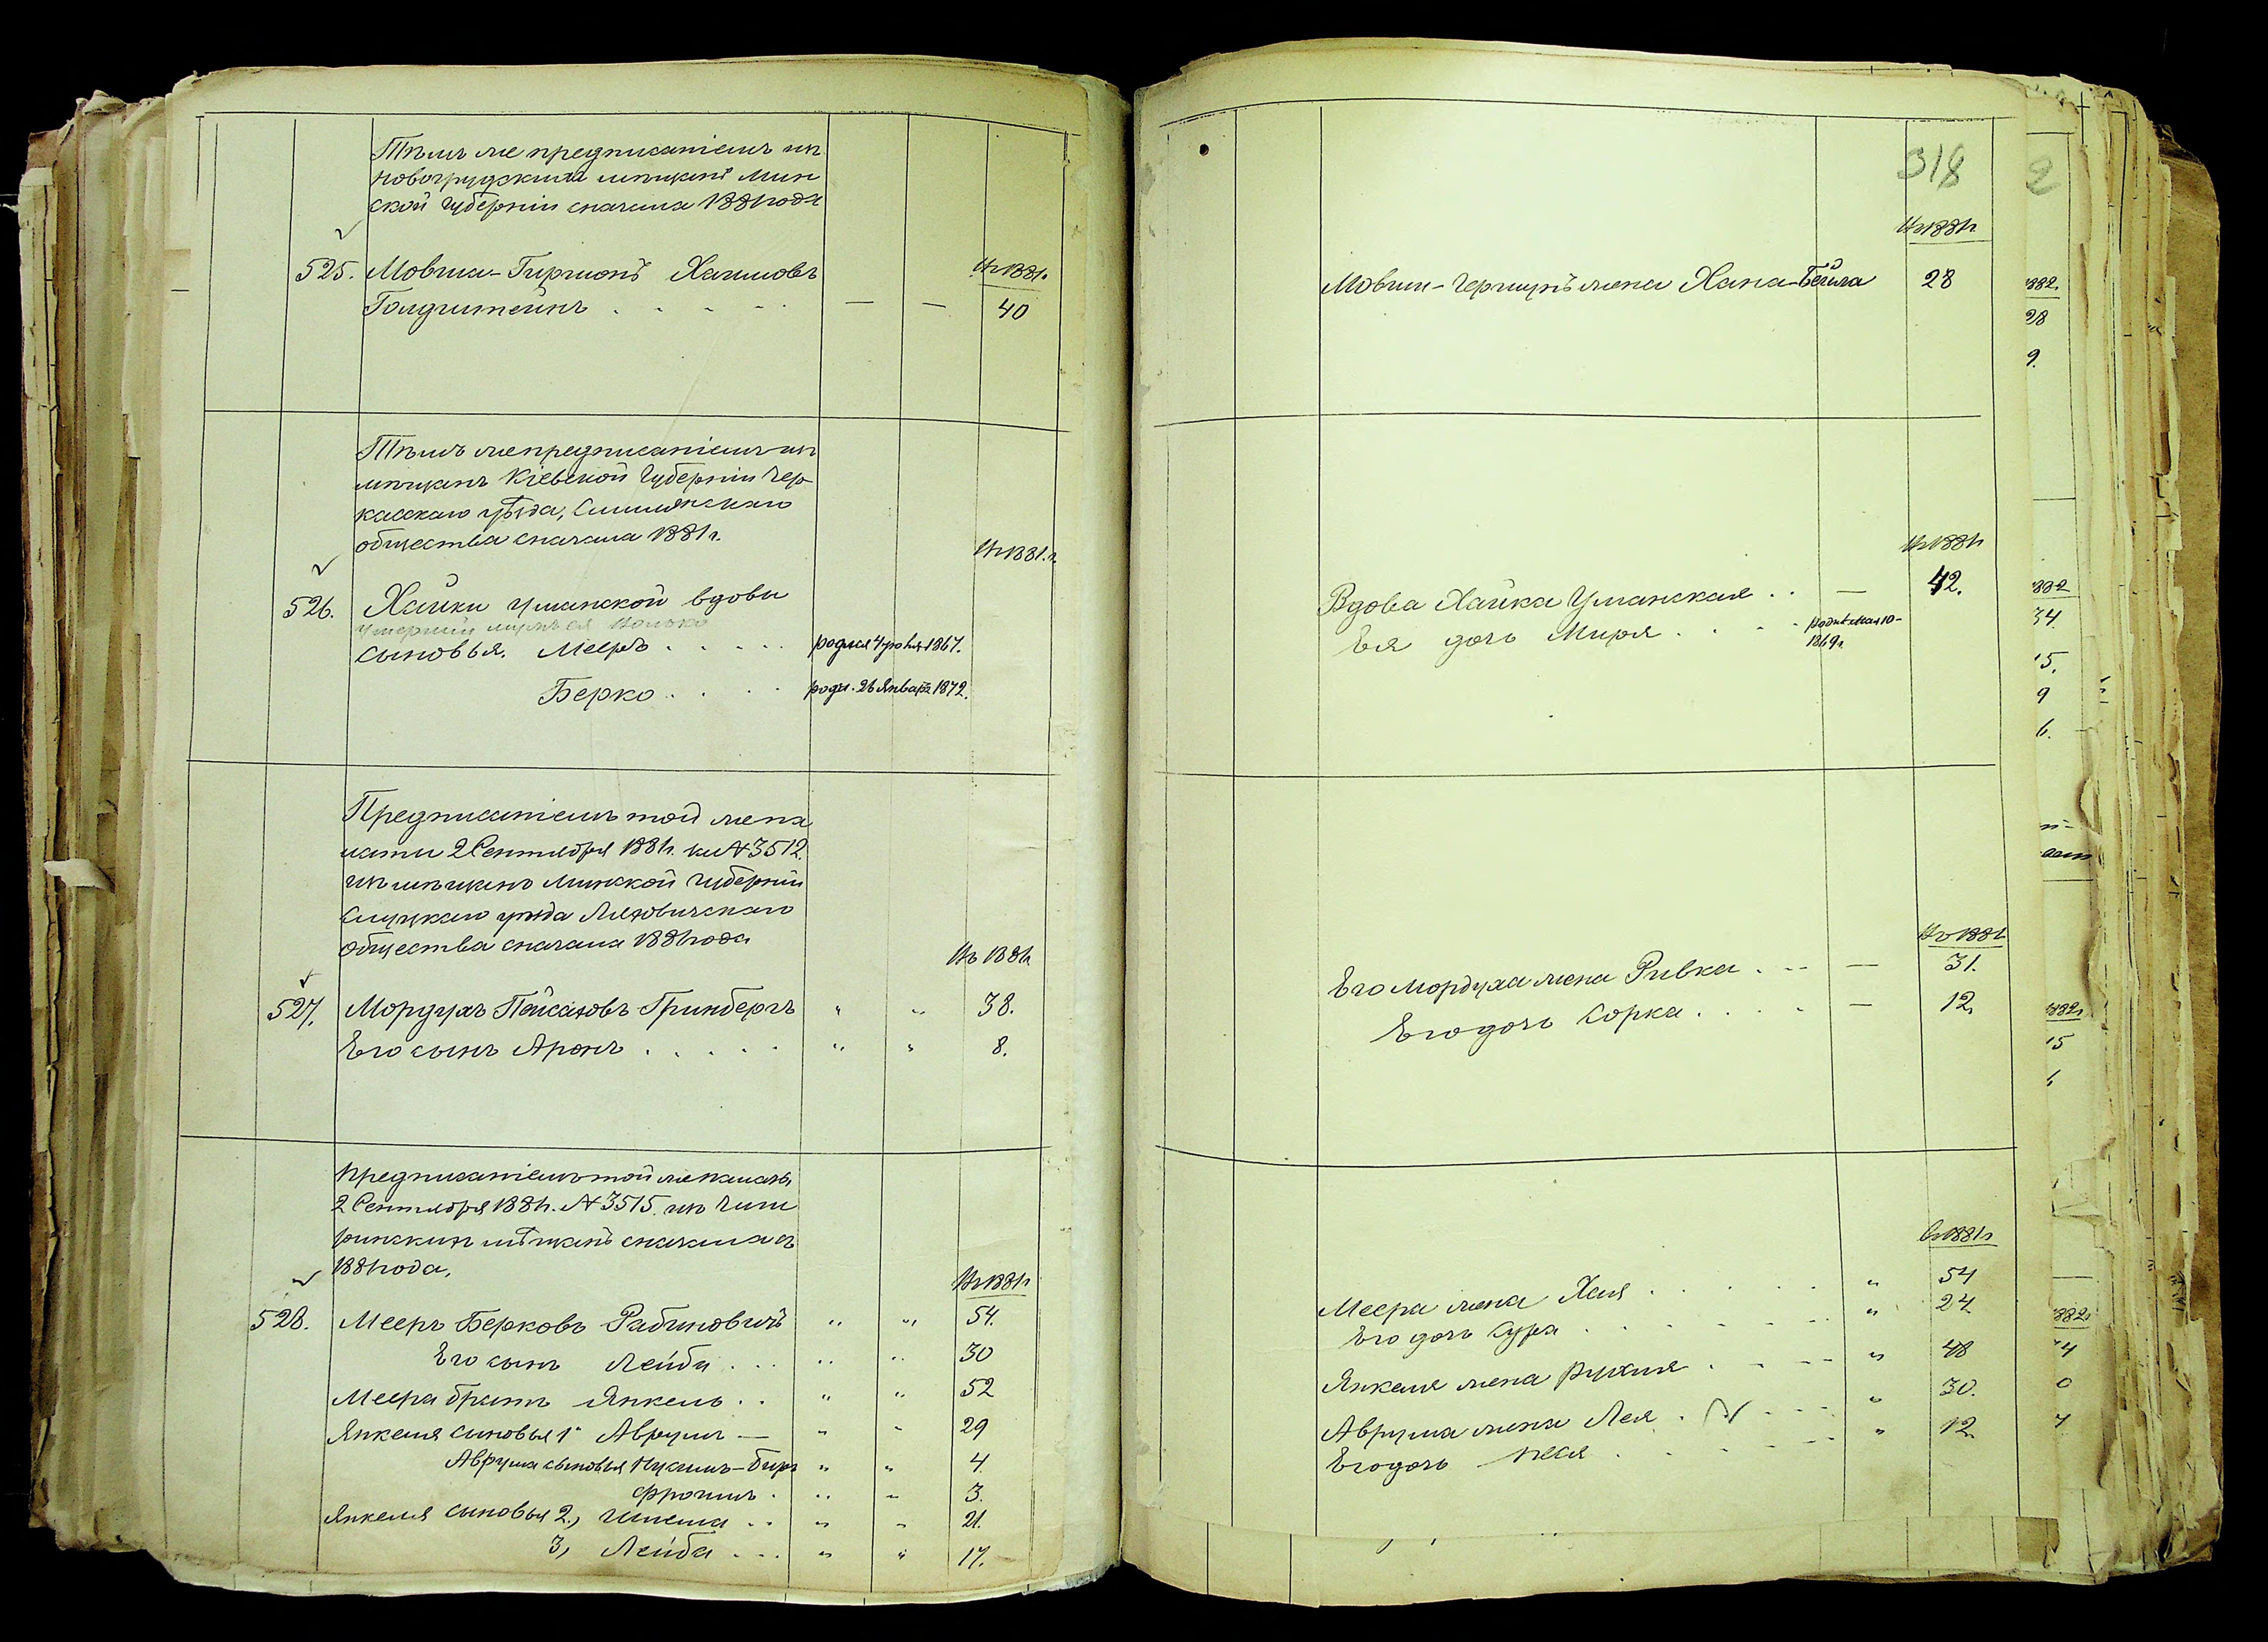 Тѣмъ же предписаніемъ изъ
Новогрудскихъ мѣщанъ Мин
ской Губерніи сначала 1881 года
Въ 1881 г.
525. Мовша-Гиршонъ Хаимовъ
Голдштейнъ . . . . . — — 40
Тѣмъ же предписаніемъ изъ
мѣщанъ Кіевской Губерніи Чер
касскаго уѣзда, Смѣлянскаго
общества сначала 1881 г.
Въ 1881 г.
526. Хайки Уманской вдовы
умершій мужъ ея
сыновья. Мееръ . . . . . родился 4 1867.
Берко . . . . роди. 26 Января 1872.
Предписаніемъ той же па
латы 2 Сентября 1881 г. за № 3512.
изъ мѣщанъ Минской Губерніи
Слуцкаго уѣзда Ляховичскаго
общества сначала 1881 года
Въ 1881 г.
527. Мордухъ Пейсаховъ Гринбергъ " " 38.
Его сынъ Аронъ . . . . . " " 8.
Предписаніемъ той же палаты
2 Сентября 1881 г. № 3515. изъ Чиги
ринскихъ мѣщанъ сначала
1881 года,
Въ 1881 г.
528. Мееръ Берковъ Рабиновичъ " " 54.
Его сынъ Лейба . . . " " 30
Меера братъ Янкель . . " " 52
Янкеля сыновья 1. Аврумъ — " " 29
Аврума сыновья Нухимъ-Беръ " " 4
Фроимъ . " " 3.
Янкеля сыновья 2, . . " " 21.
3, Лейба . . . " " 17.
318
Въ 1881 г.
Мовши-Гершунъ жена Хана-Бейла 28
Въ 1881 г.
Вдова Хайка Уманская . . — 42.
Ея дочь Мирля . . . . родил. мая 10-
1869 г.
Въ 1881 г.
Его Мордуха жена Ривка . — — 31.
Его дочь Сорка . . . . — 12.
въ 1881 г.
Меера жена Хая . . . . . " 54
Его дочь Сура . . . . . . " 24
Янкеля жена Рухля . . . — " 48
Аврума жена Лея . . . . " 30.
Его дочь Песя . . . . . " 12.